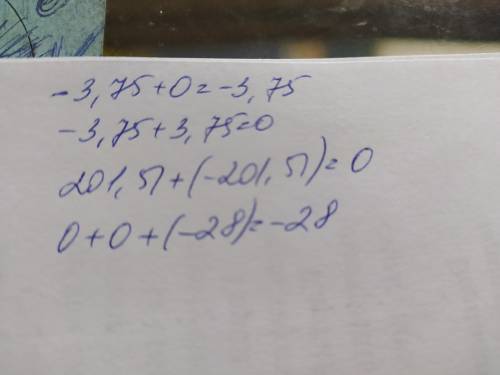 -3,75+0=-3,75
-3,75+3,75=0
201,51+(-201,51)=0
0+0+(-28)=-28